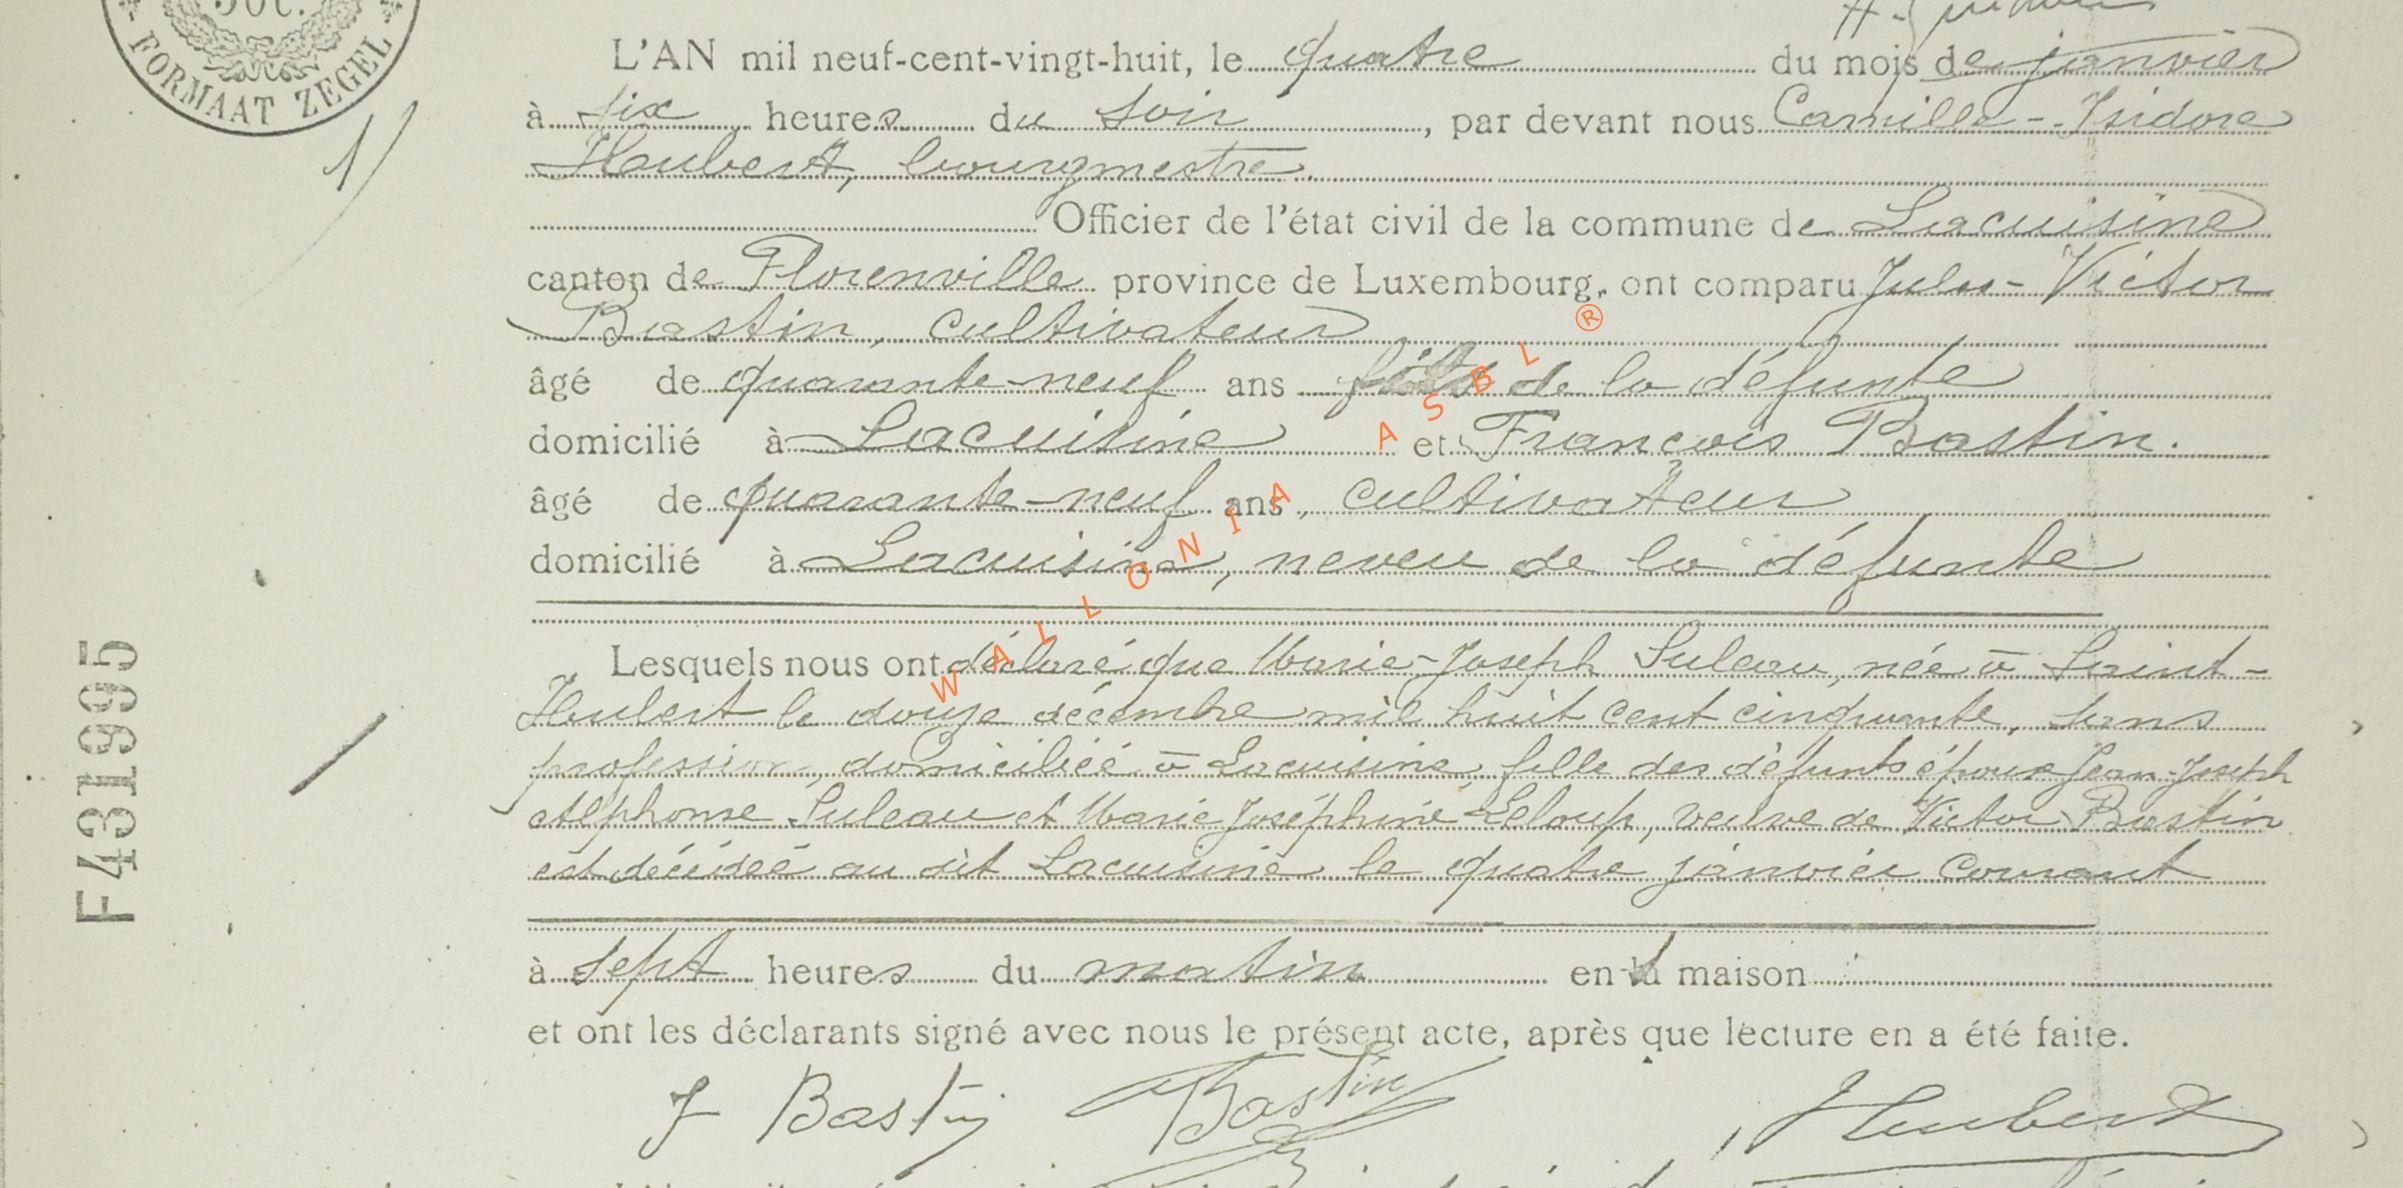 50c.
FORMAAT ZEGEL
1/
L'AN mil neuf-cent-vingt-huit, le quatre du mois de janvier
à six heures du soir, par devant nous Camille-Isidore
Haubert, bourgmestre.
Officier de l'état civil de la commune de Lacuisine
canton de Florenville province de Luxembourg, ont comparu Jules-Victor
Bastin, cultivateur
âgé de quarante-neuf ans fils de la défunte
domicilié à Lacuisine et François Bastin.
âgé de quarante-neuf ans, cultivateur
domicilié à Lacuisine, neveu de la défunte
Lesquels nous ont déclaré que Marie-Joseph Suleau, née à Saint-
Hubert le douze décembre mil huit cent cinquante, sans
profession, domiciliée à Lacuisine, fille des défunts époux Jean-Joseph
Alphonse Suleau et Marie Joséphine Leloup, veuve de Victor Bastin
est décédée au dit Lacuisine le quatre janvier courant
à sept heures du matin en sa maison
et ont les déclarants signé avec nous le présent acte, après que lecture en a été faite.
J Bastin Bastin Haubert
F431995
WALLONIA ASBL ®